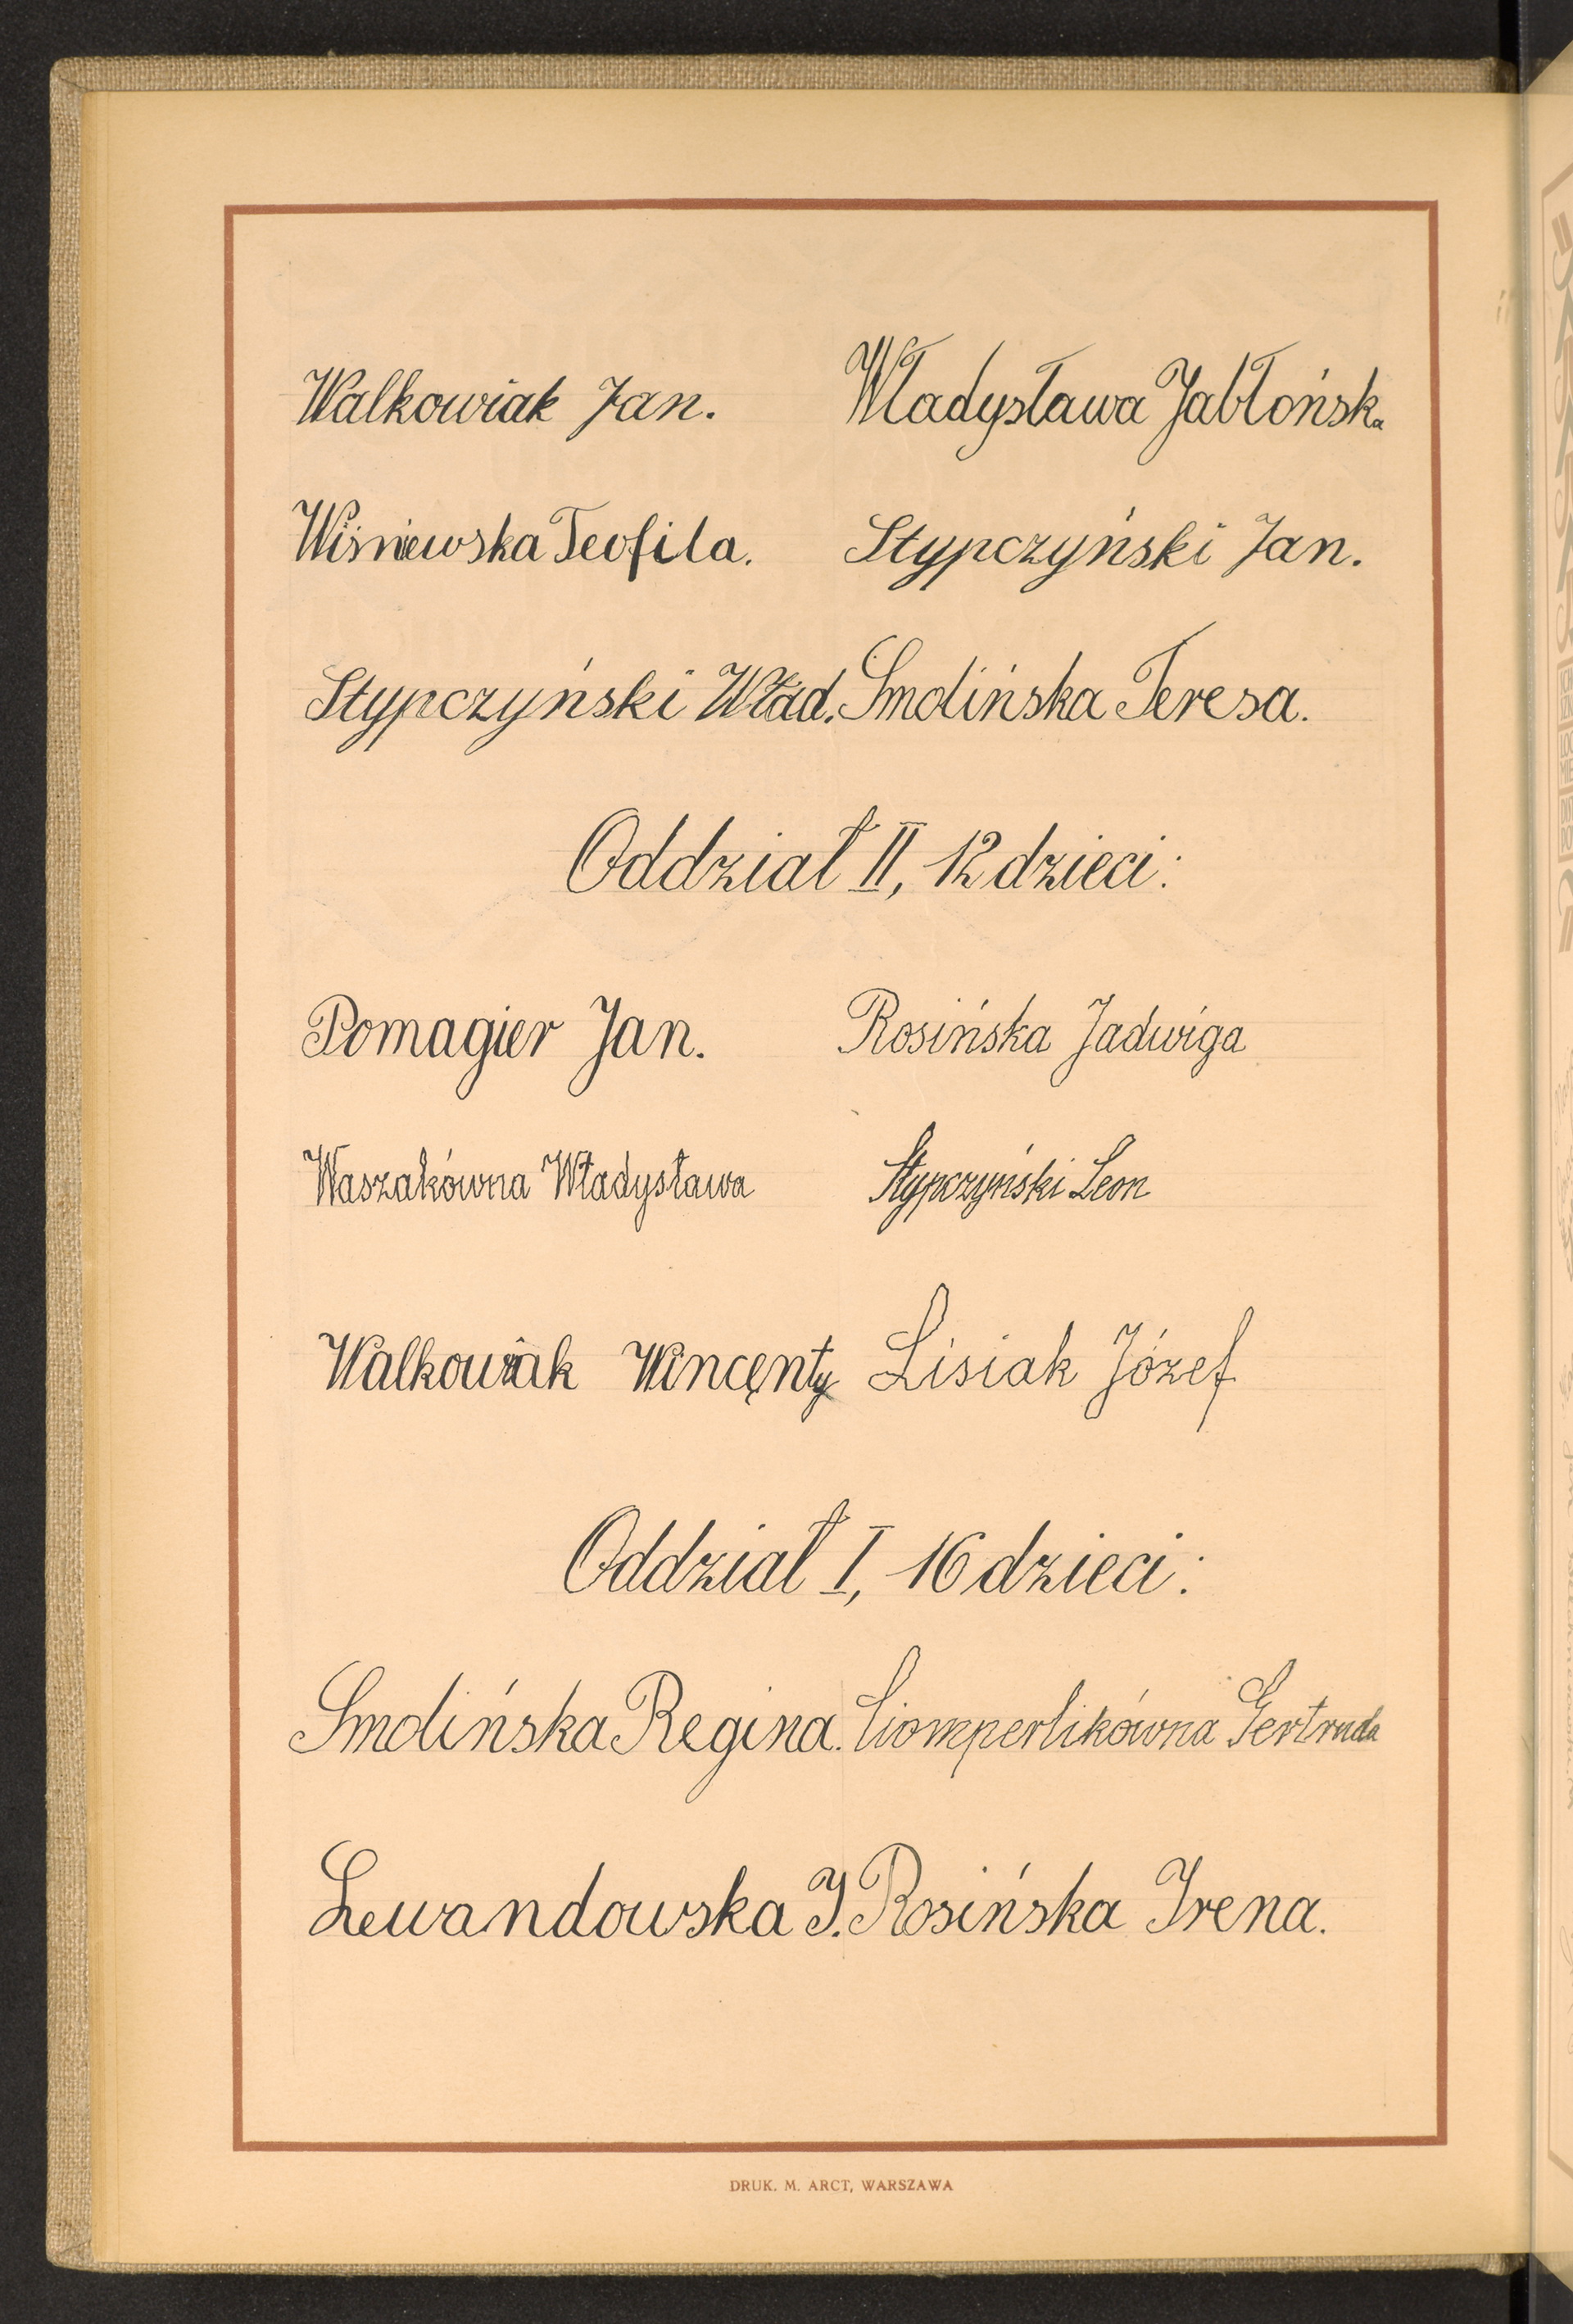 Walkowiak Jan. Władysława Jabłońska
Wiśniewska Teofila. Stypczyński Jan.
Stypczyński Wład. Smolińska Teresa.
Oddział II, 12 dzieci:
Pomagier Jan. Rosińska Jadwiga
Waszakówna Władysława Stypczyński Leon
Walkowiak Wincęnty Lisiak Józef
Oddział I, 16 dzieci:
Smolińska Regina. Ciomperlikówna Gertruda
Lewandowska I. Rosińska Irena.
DRUK. M. ARCT, WARSZAWA